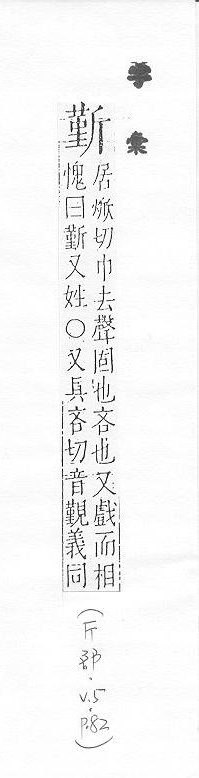 字彙
斳
居焮切巾去聲固也吝也又戲而相
愧曰斳又姓〇又具吝切音覲義同
(斤部.v.5.p.82)